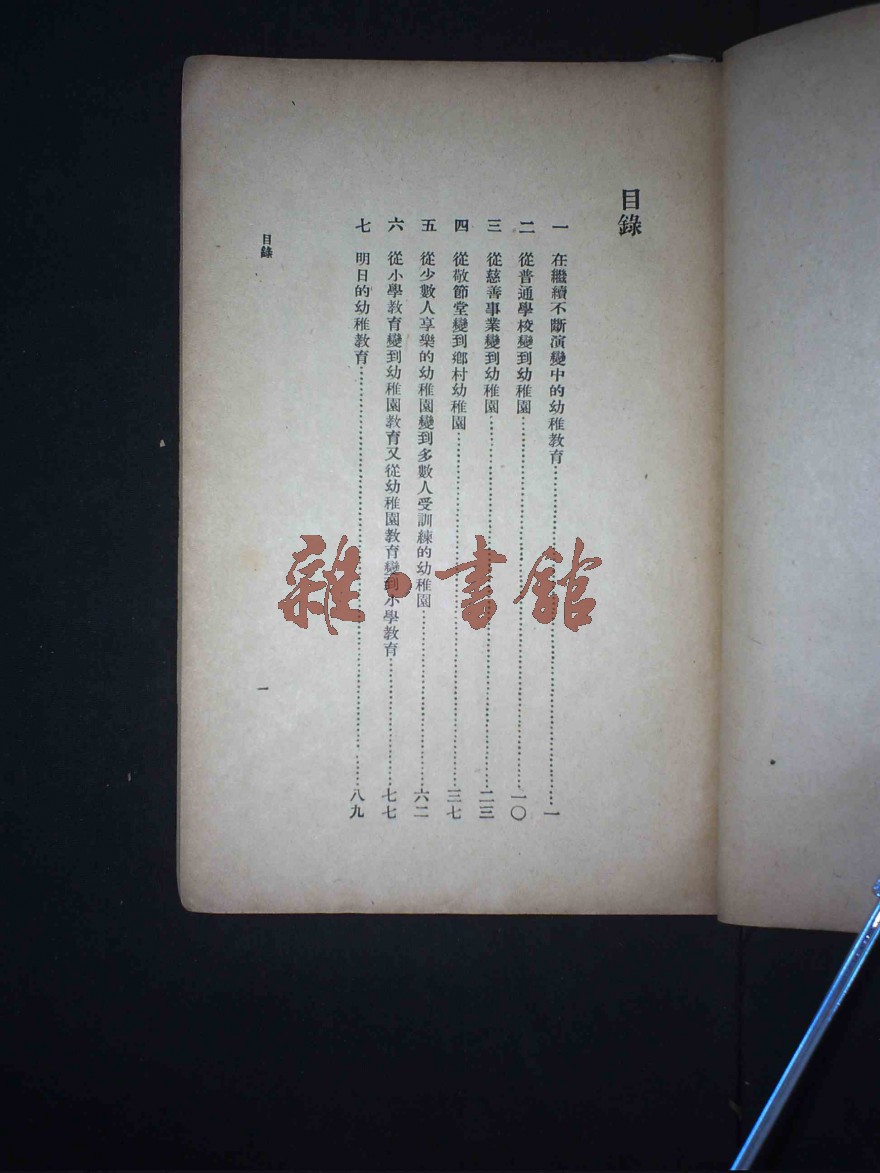 目錄
一 在繼續不斷演變中的幼稚教育……一
二 從普通學校變到幼稚園……一〇
三 從慈善事業變到幼稚園……二三
四 從敬節堂變到鄉村幼稚園……三七
五 從少數人享樂的幼稚園變到多數人受訓練的幼稚園……六二
六 從小學教育變到幼稚園教育又從幼稚園教育變到小學教育……七七
七 明日的幼稚教育……八九
目錄
一
雜·書館